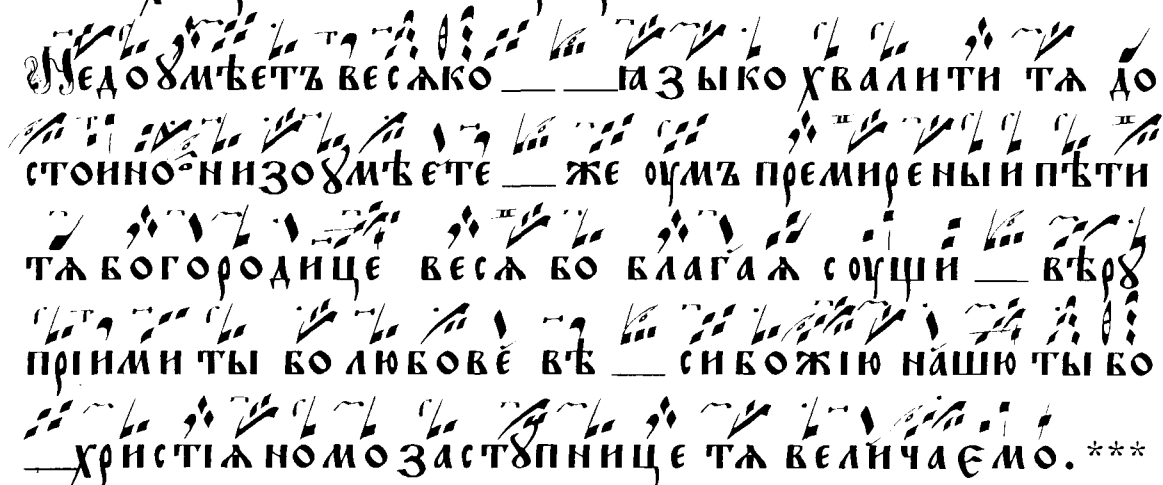 Недоꙋмѣетъ весѧко ___ ___ꙗзыко хвалити тѧ до
стоино низоꙋмѣете ___ же оумъ премиреныи пѣти
тѧ богородице весѧ бо благаѧ соущи ___ вѣрꙋ
прїими ты бо любове вѣ ___ си божїю нашю ты бо
___христїѧномо застꙋпнице тѧ величаємо. ***